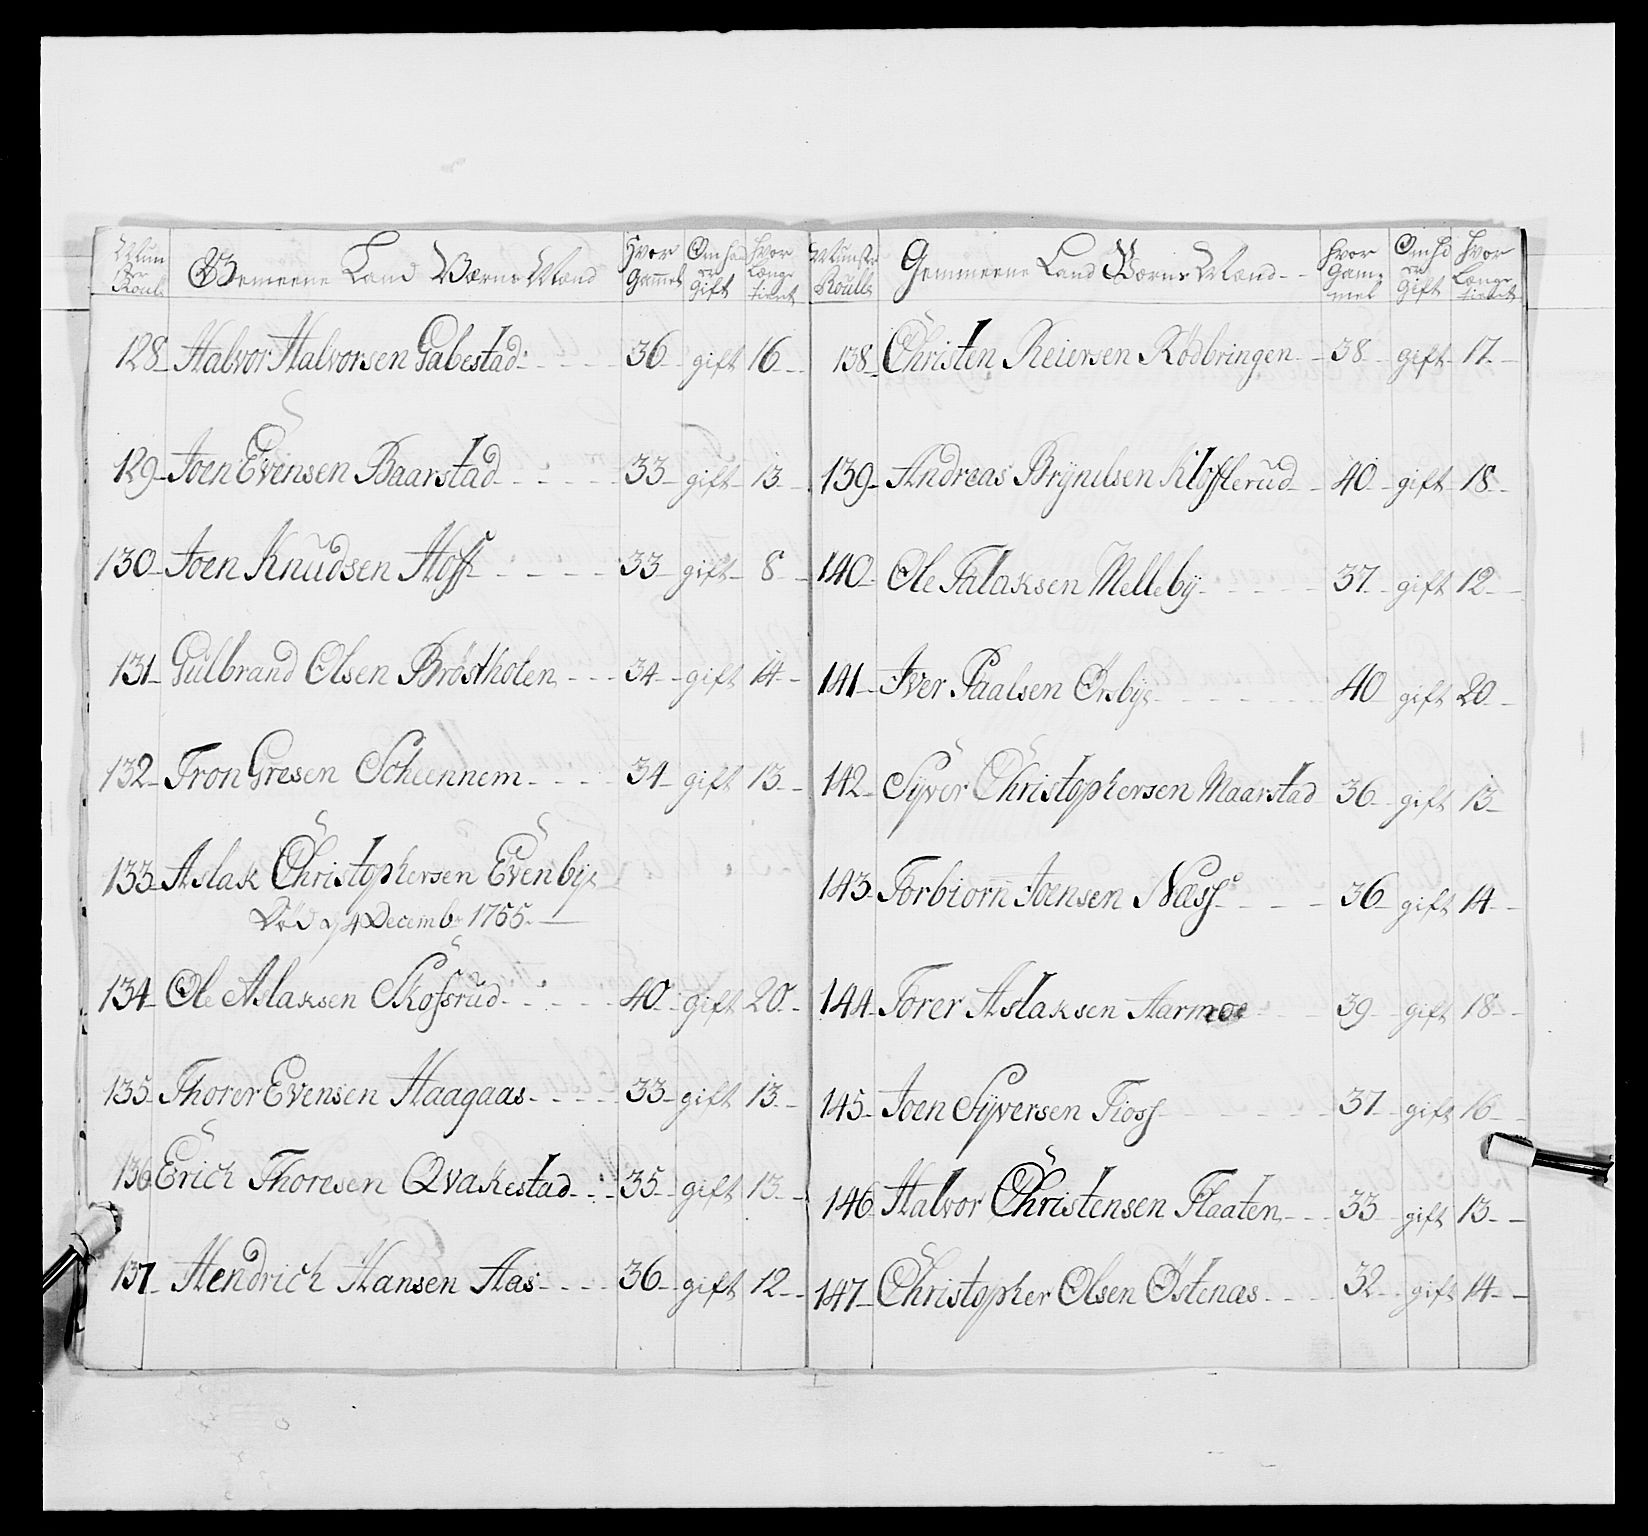 Gemeene Land Værns Mand
Hvor Gammel
Om hand er Gift
Hvor Længe tient
128 Halvor Halvorsen Gabestad 36 gift 16
129 Joen Evensen Baarstad 33 gift 13
130 Joen Knudsen Hoff 33 gift 8
131 Gulbrand Olsen Bröstholen 34 gift 14
132 Tron Gresen Scheennem 34 gift 13
133 Aslak Christophersen Evenbÿe
Död d 4 Decemb: 1755.
134 Ole Aslaksen Skofsrud 40 gift 20
135 Thorer Evensen Haagaas 33 gift 13
136 Erich Thoresen Qvakestad 35 gift 13
137 Hendrich Hansen Aas 36 gift 12
Gemmeene Land Værns Mand
Hvor Gammel
Om hd er Gift
Hvor Længe tient
138 Christen Reiersen Rödbringen 38 gift 17
139 Andreas Brÿnilsen Klofterud 40 gift 18
140 Ole Aslaksen Mellebÿ 37 gift 12
141 Iver Paalsen Örbÿe 40 gift 20
142 Sÿver Christophersen Maarstad 36 gift 13
143 Torbiorn Joensen Næss 36 gift 14
144 Torer Aslaksen Aarmoe 39 gift 18
145 Joen Sÿversen Tioss 37 gift 16
146 Halvor Christensen Flaaten 33 gift 13
147 Christopher Olsen Östenæs 32 gift 14